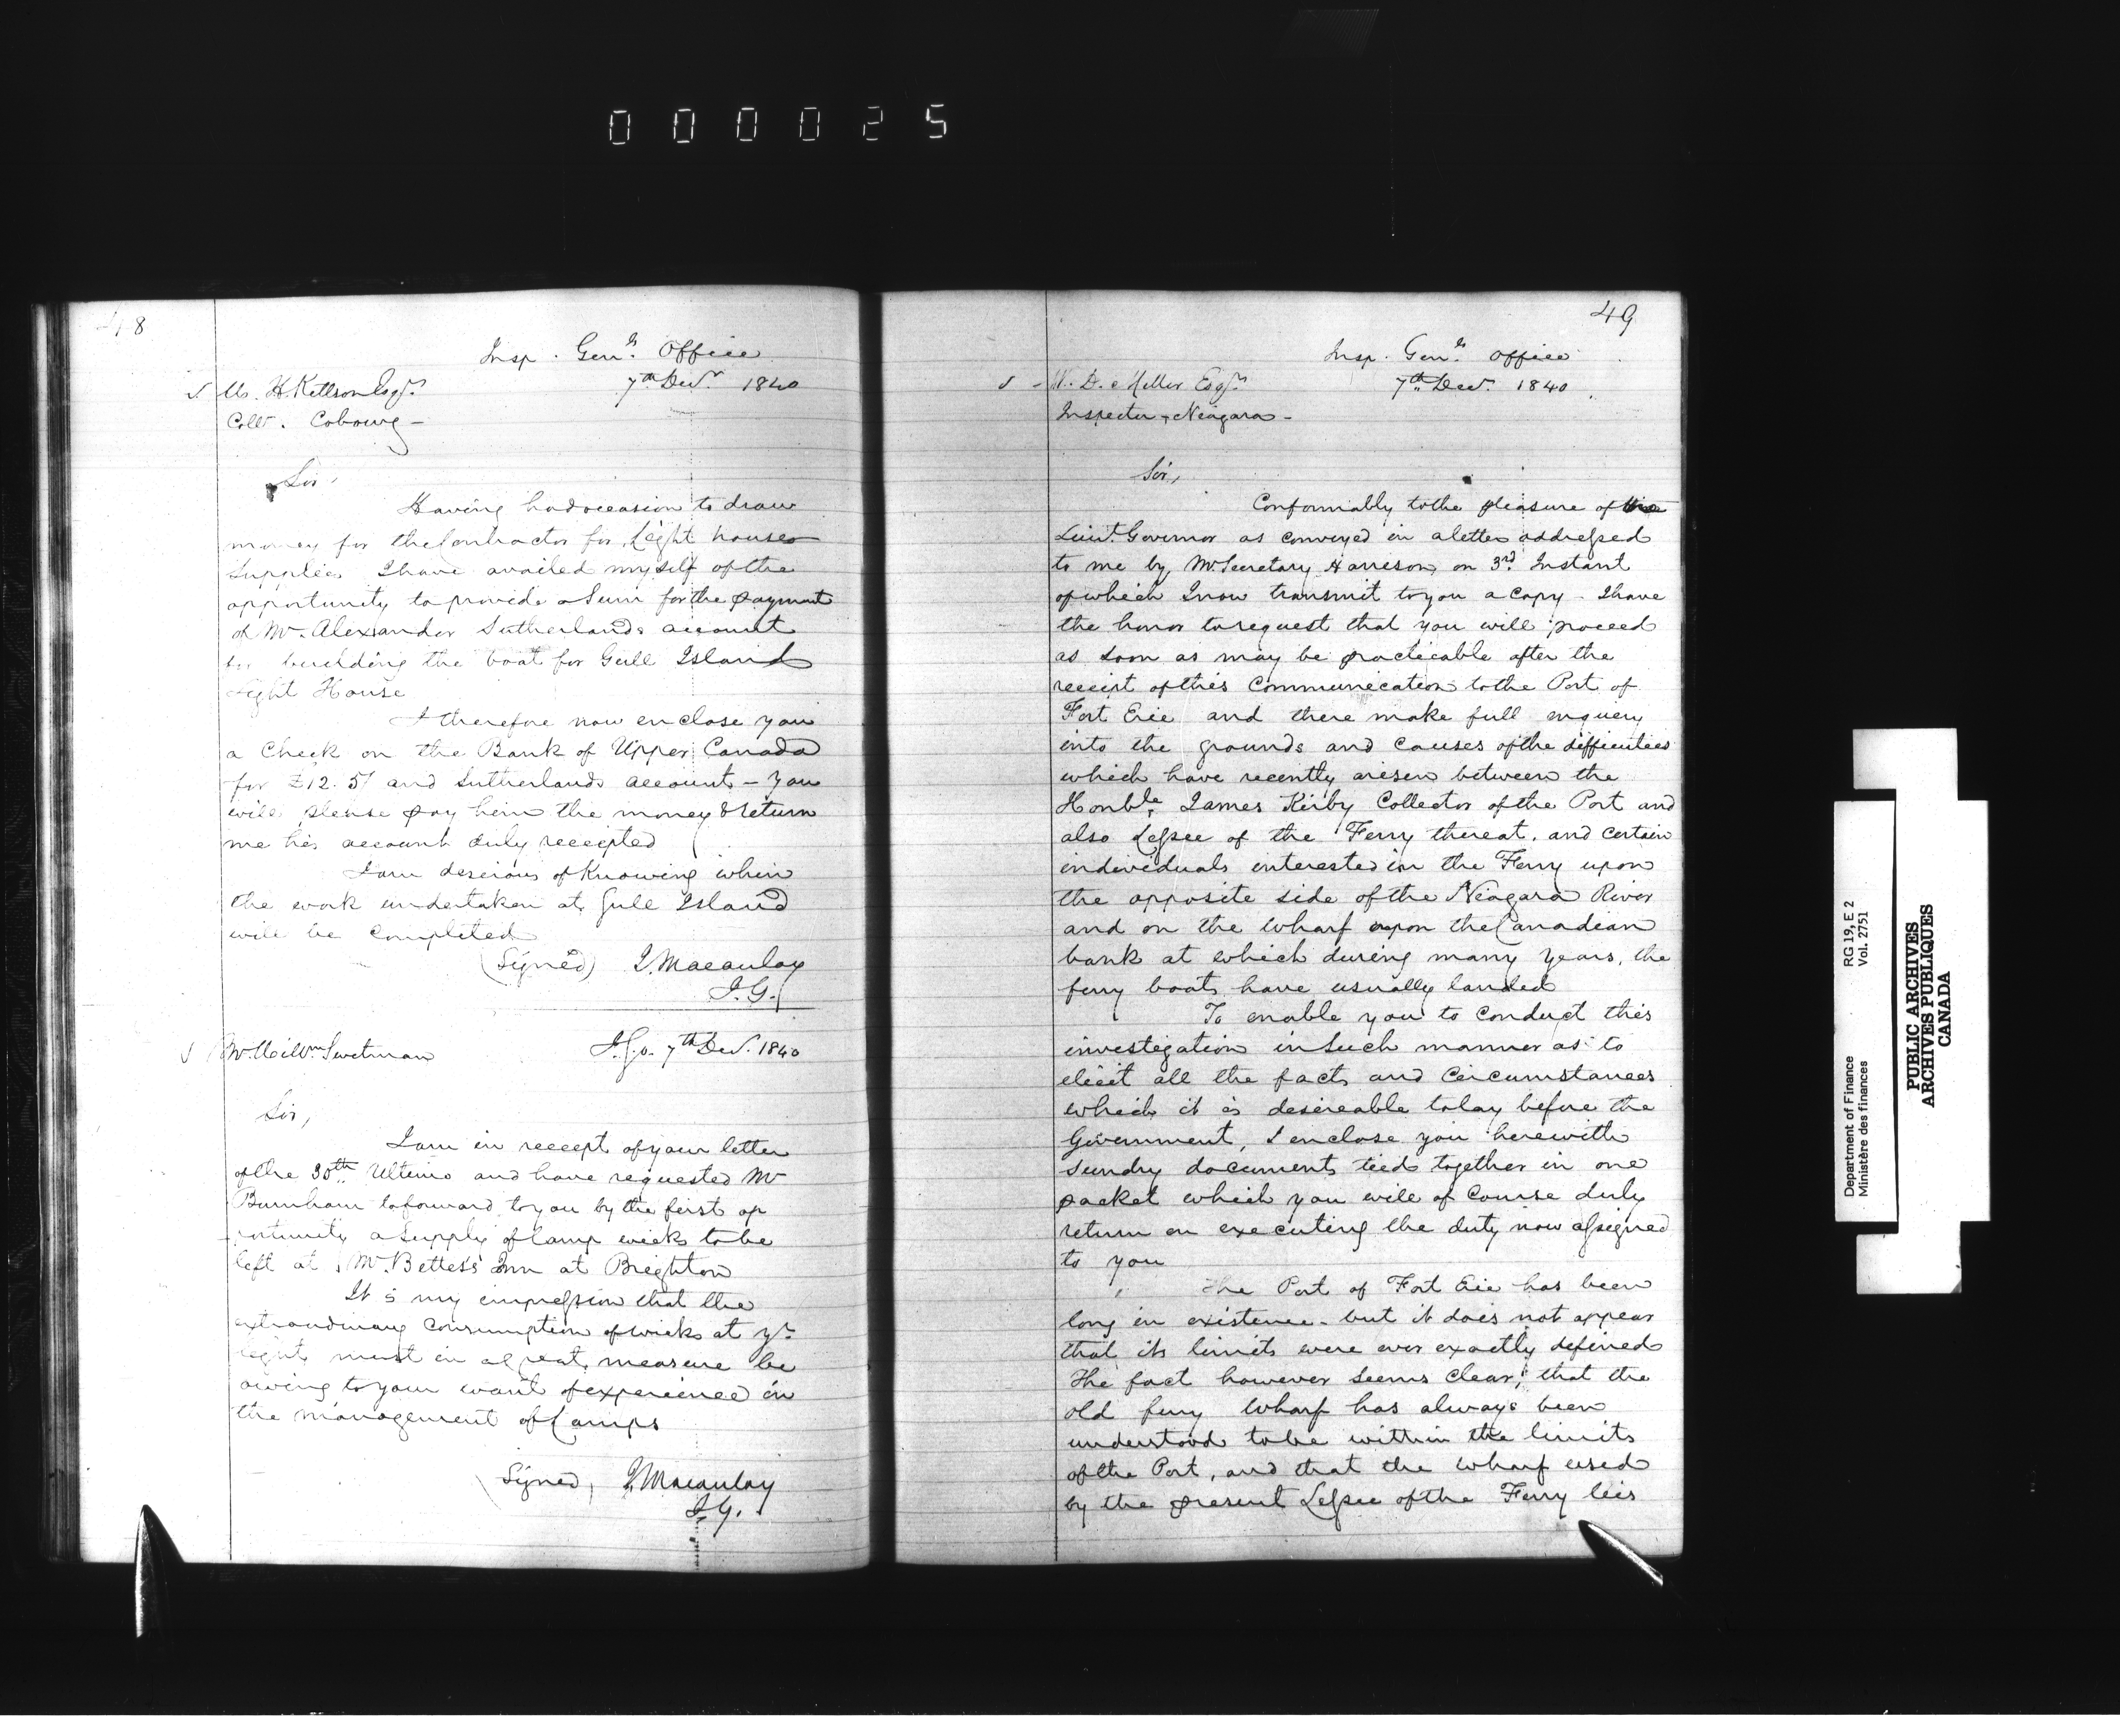 000025
48
Insp. Genls. Office
7th Decr. 1840
H. Kittson Esqr.
Collr. Cobourg -
Sir,
Having had occasion to draw
money for the Contractor for Light house
Supplies I have availed myself of the
opportunity to provide a Sum for the payment
of Mr. Alexander Sutherlands account
for building the boat for Gull Island
Light House
I therefore now enclose you
a Check on the Bank of Upper Canada
for £12. 5/ and Sutherlands account - You
will please pay him the money & return
me his account duly receipted
I am desirous of Knowing when
the work undertaken at Gull Island
will be completed
(Signed) J. Macaulay
I.G.
Swetman
I.G.o. 7th Decr. 1840
Sir,
I am in receipt of your letter
of the 30th Ultimo and have requested Mr
Burnham to forward to you by the first op
portunity a Supply of lamp wicks to be
left at Mr. Bettes's Inn at Brighton
It is my impression that the
extraordinary consumption of wicks at yr.
light must in a great measure be
owing to your want of experience in
the management of Lamps
(Signed) J. Macaulay
I.G.
49
Insp. Genls. Office
7th Decr. 1840
W. D. Miller Esqr.
Inspector, Niagara -
Sir,
Conformably to the pleasure of the
Lieut. Governor as conveyed in a letter addressed
to me by Mr. Secretary Harrison, on 3rd Instant
of which I now transmit to you a Copy - I have
the honor to request that you will proceed
as soon as may be practicable after the
receipt of this Communication to the Port of
Fort Erie and there make full enquiry
into the grounds and causes of the difficulties
which have recently arisen between the
Honble. James Kirby Collector of the Port and
also Lessee of the Ferry thereat, and certain
individuals interested in the Ferry upon
the opposite side of the Niagara River
and on the Wharf upon the Canadian
bank at which during many years, the
ferry boats have usually landed
To enable you to conduct this
investigation in Such manner as to
elicit all the facts and Circumstances
which it is desireable to lay before the
Government, I enclose you herewith
sundry documents tied together in one
packet which you will of Course duly
return on executing the duty now assigned
to you
The Port of Fort Erie has been
long in existence - but it does not appear
that its limits were ever exactly defined
The fact however seems clear, that the
old ferry Wharf has always been
understood to be within the limits
of the Port, and that the wharf used
by the present Lessee of the Ferry lies
Department of Finance RG 19, E 2
Ministère des finances Vol. 2751
PUBLIC ARCHIVES
ARCHIVES PUBLIQUES
CANADA